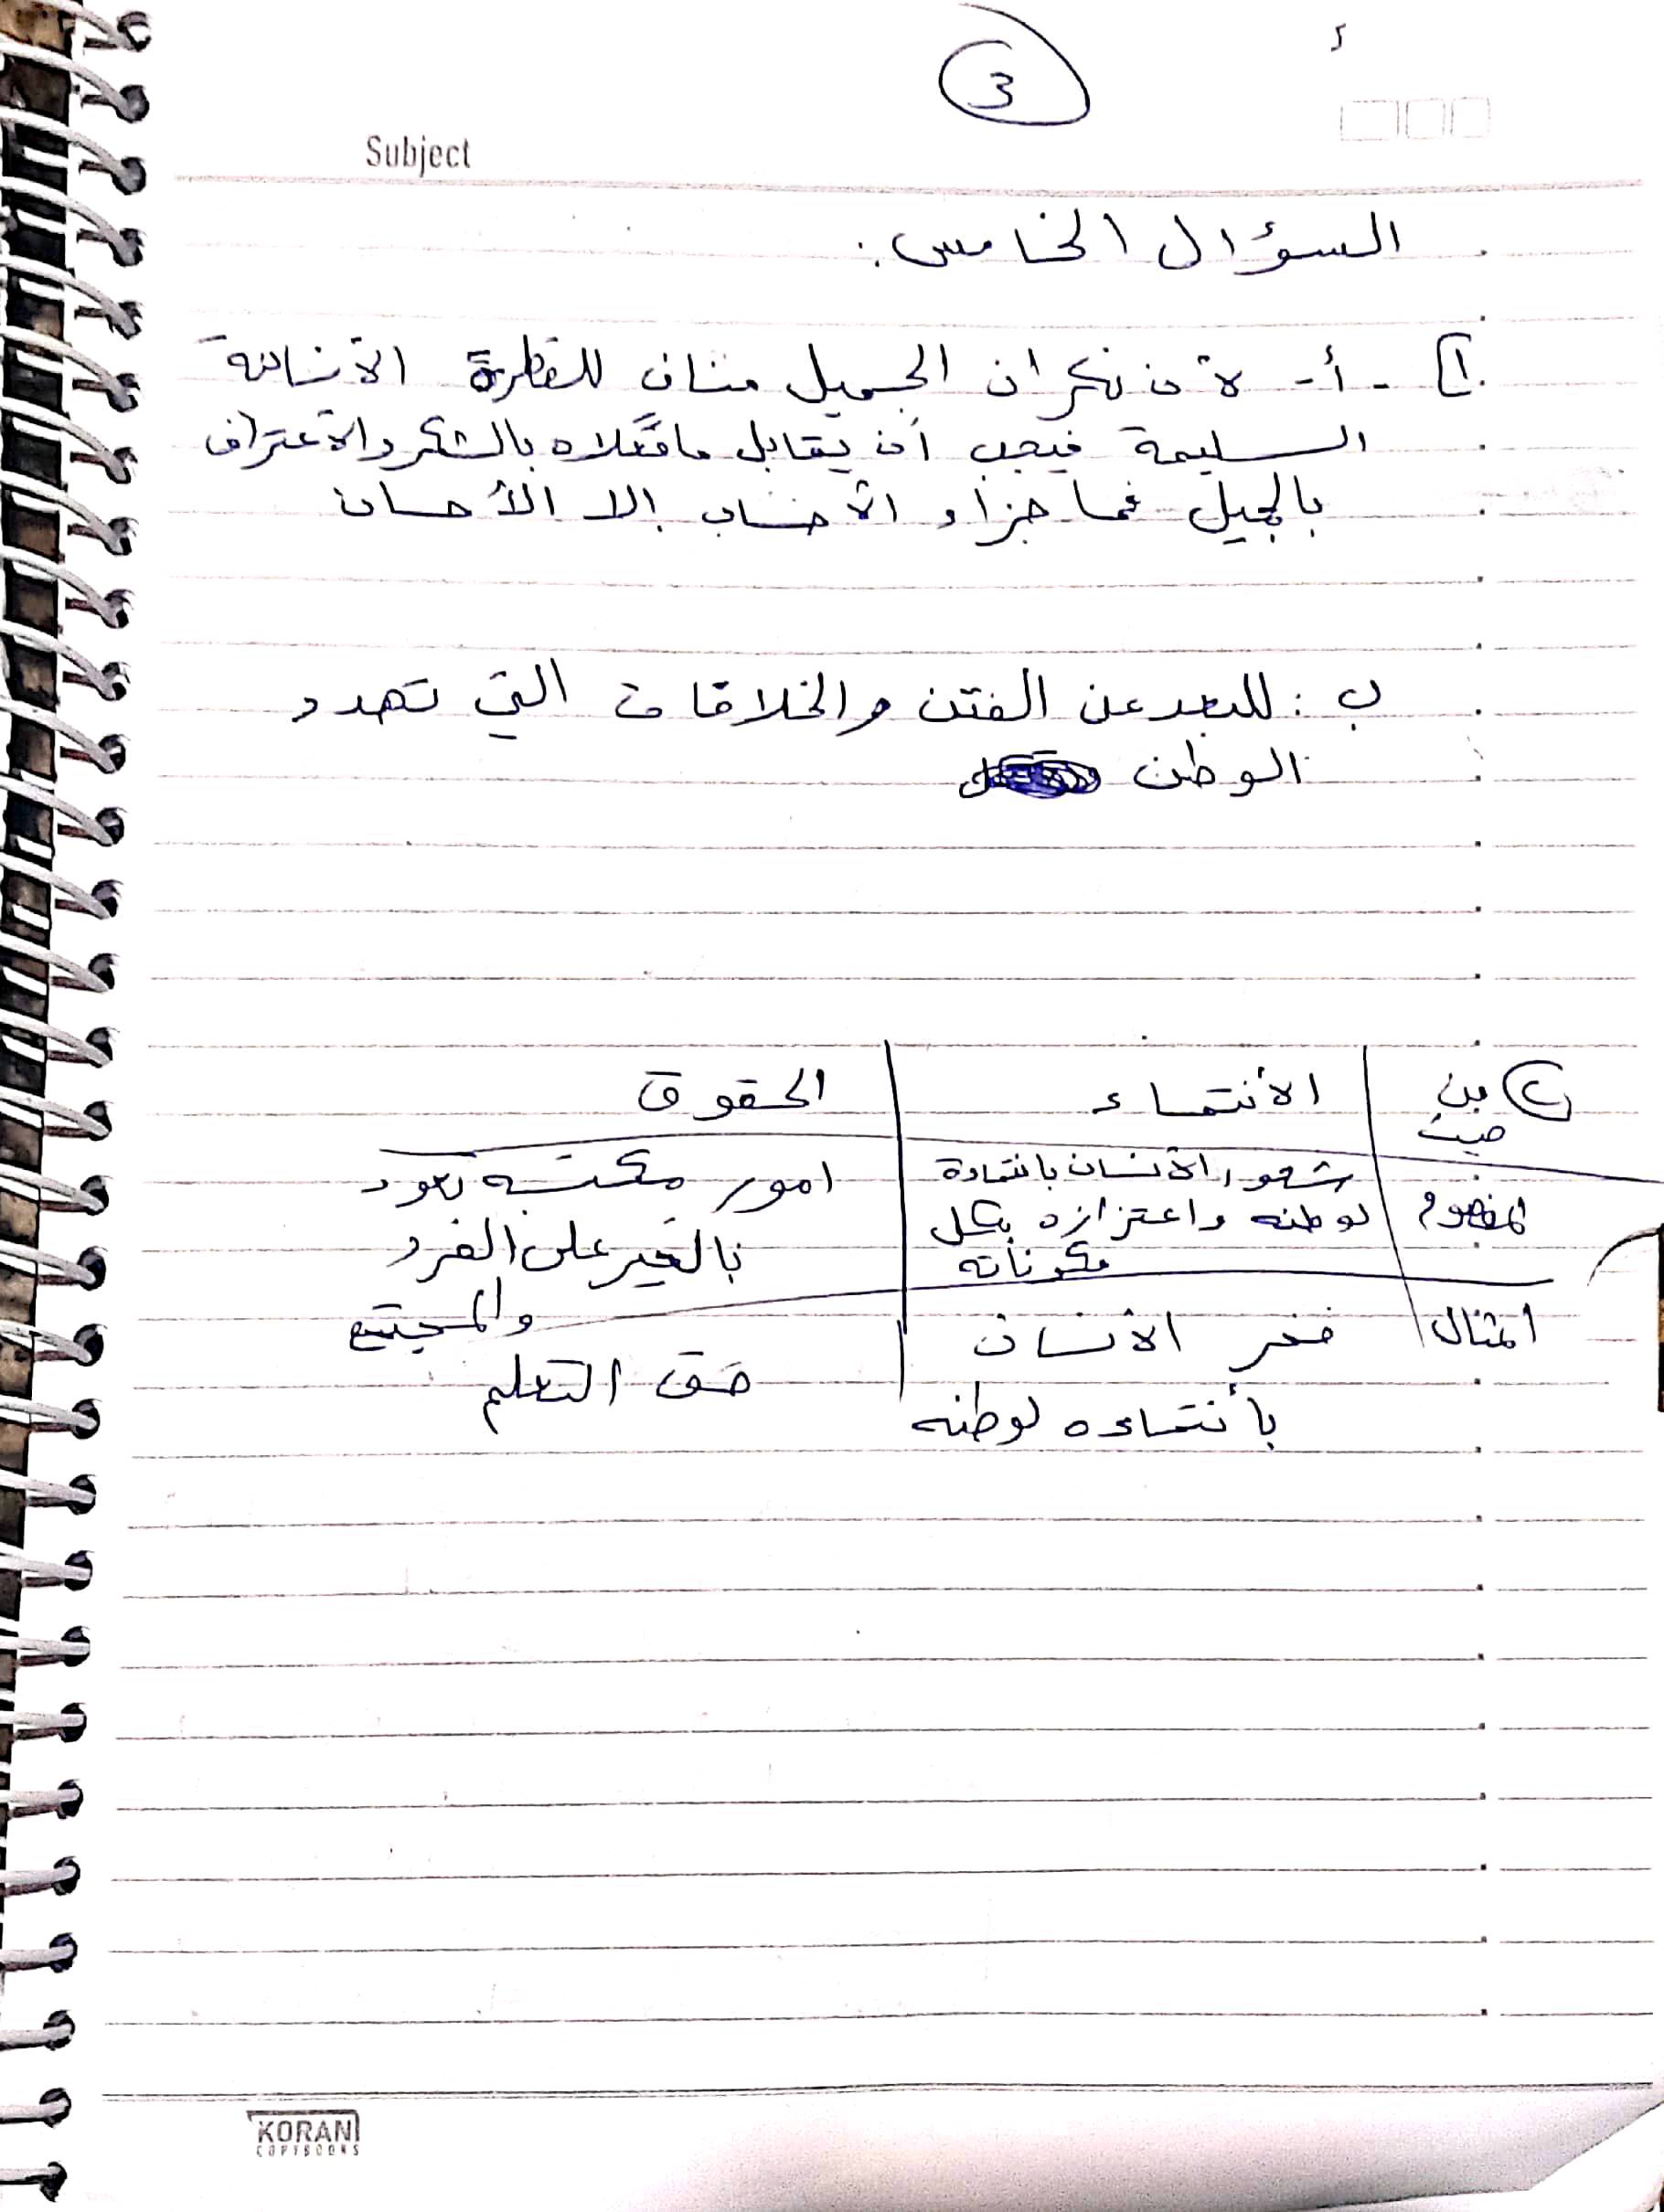 أ
3
Subject
السؤال الخامس:
1) - أ - لأن نكران الجميل منناف للفطرة الأنسانية
السليمة فيجب أن يقابل ما فعلاه بالشكر والأعتراف
بالجميل فما جزاء الأحسان إلا الأحسان
ب: للبعد عن الفتن والخلافات التي تهدد
الوطن
2) من حيث | الأنتماء | الحقوق
المفهوم | شعور الأنسان بانتماءة لوطنه واعتزازه بكل مكوناته | امور مكتسبه تعود بالخير على الفرد والمجتمع
المثال | فخر الأنسان بأنتماءه لوطنه | حق التعليم
KORAN
COPYBOOKS